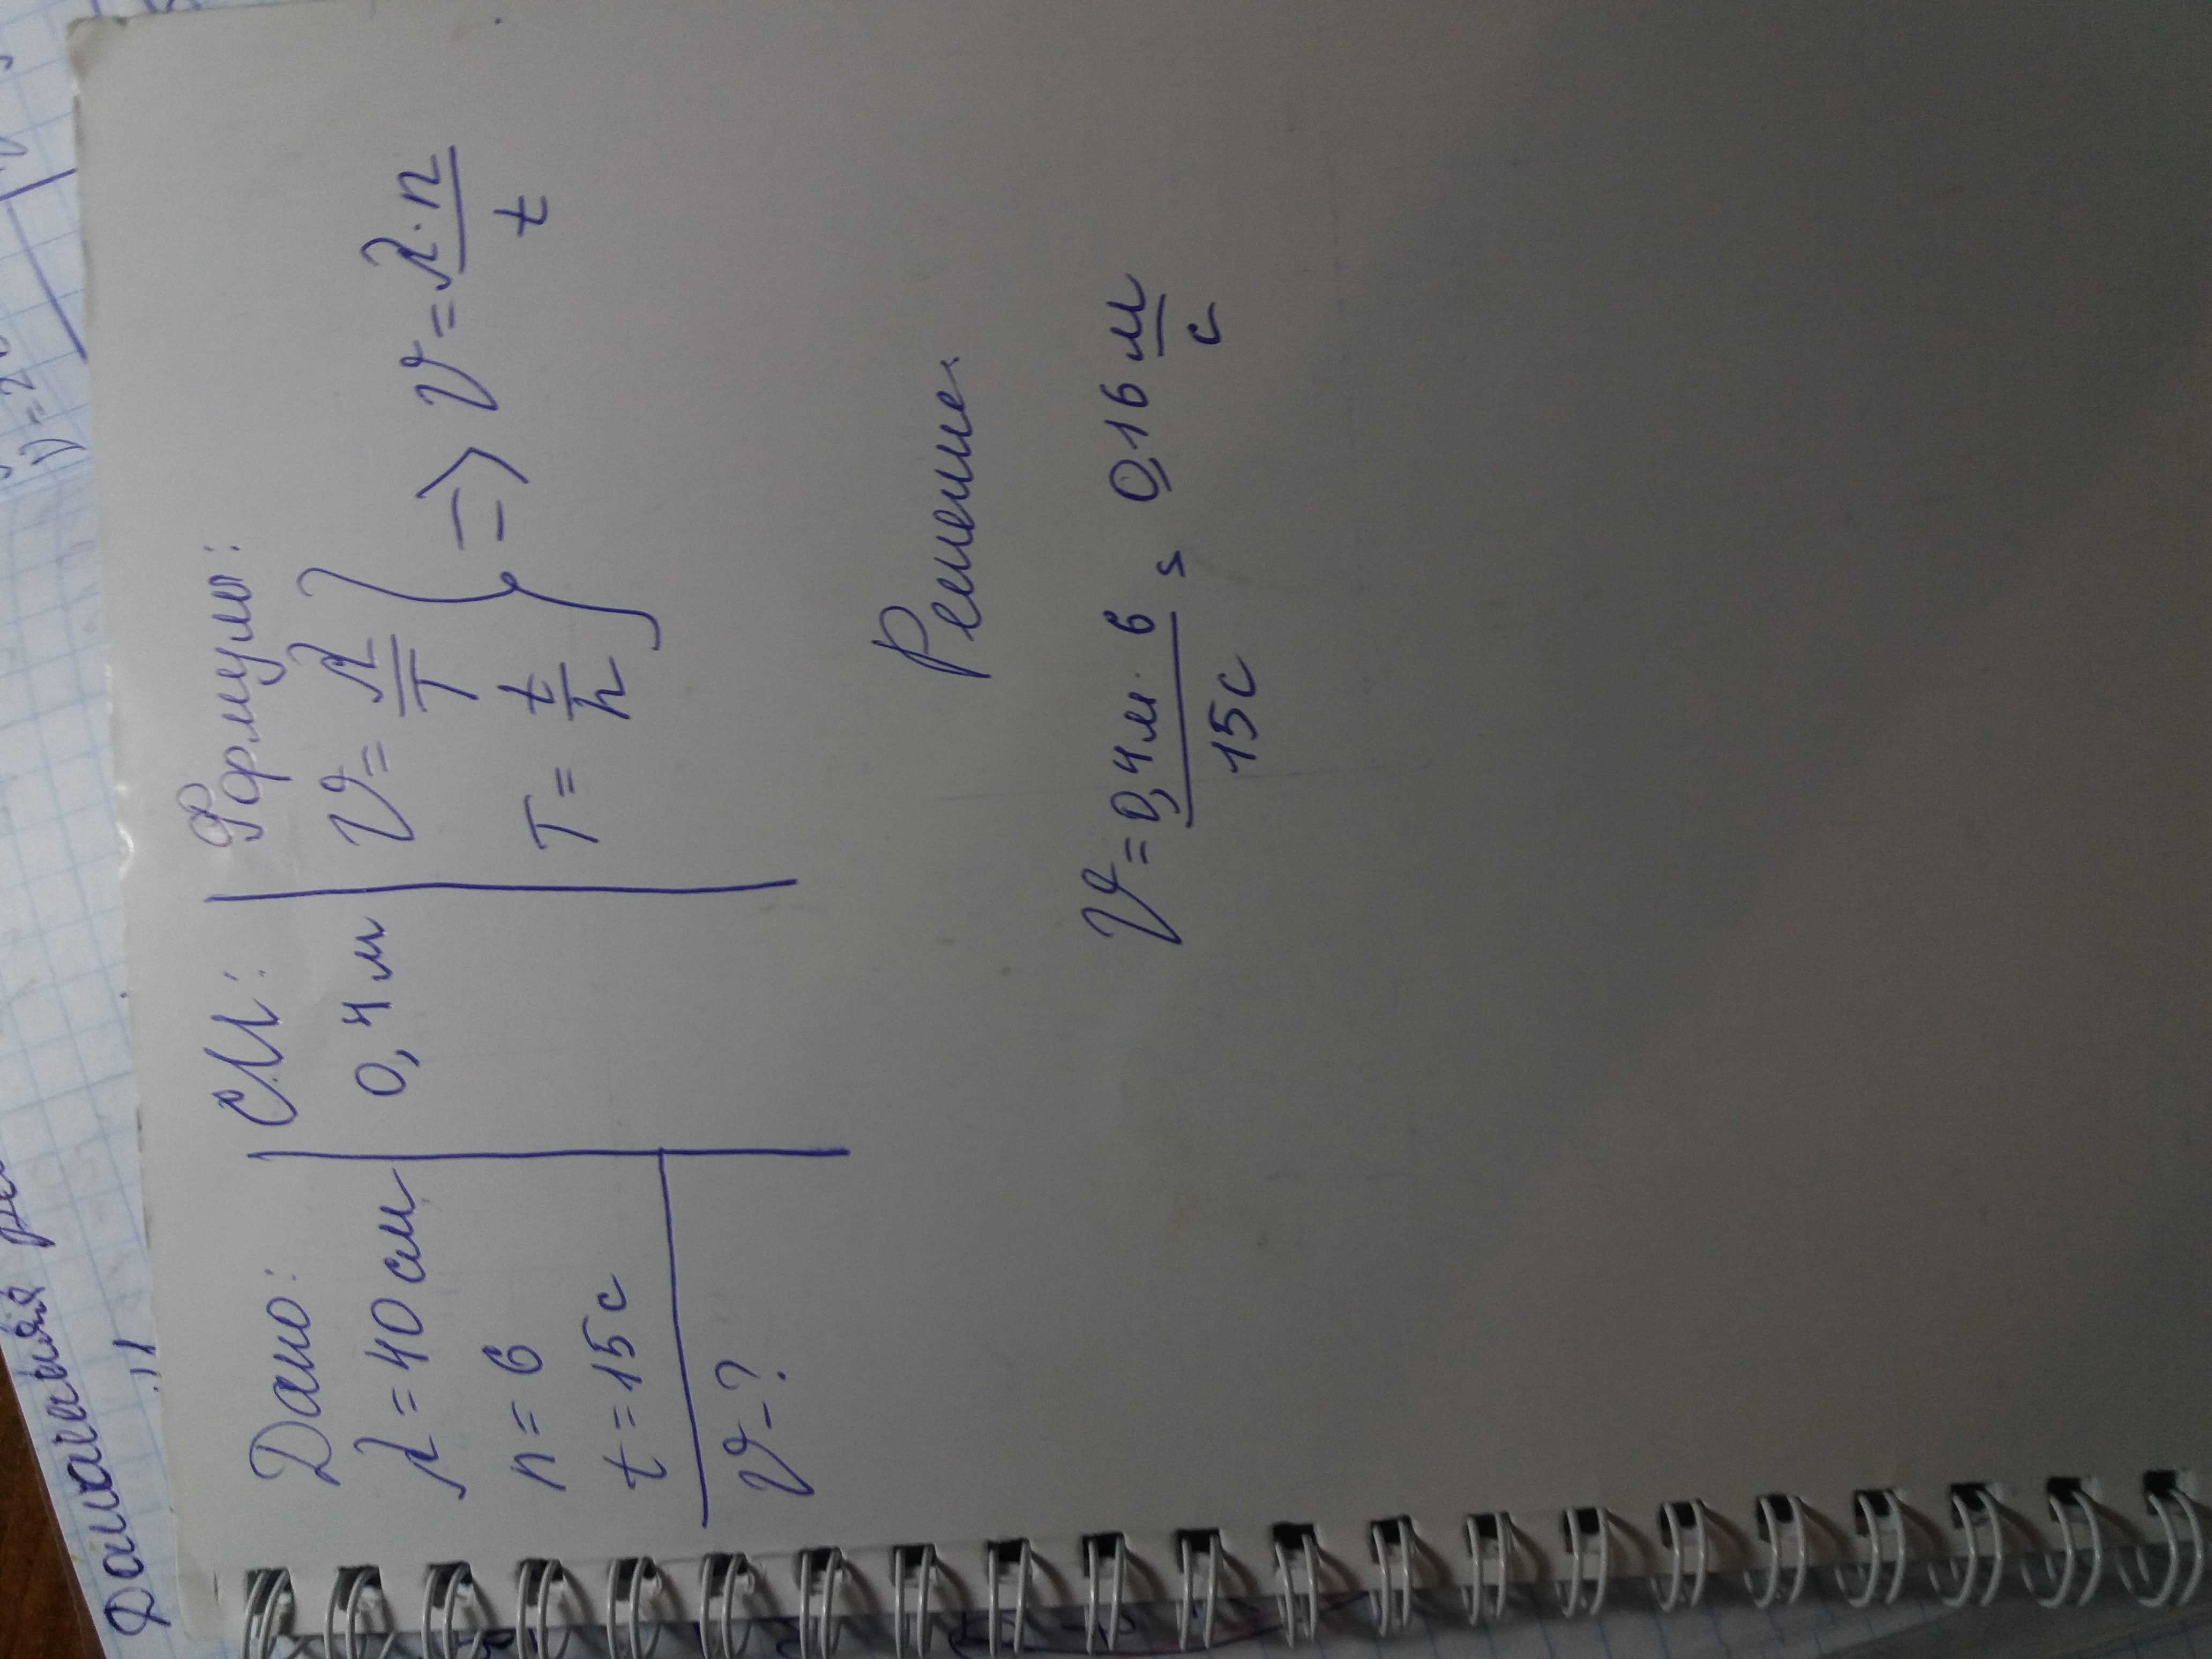 Домашняя
Дано:
λ = 40 см
n = 6
t = 15 с
V - ?
СИ:
0,4 м
Формулы:
V = λ/T
T = t/n
=> V = λ·n/t
Решение
V = 0,4м · 6 / 15с = 0,16 м/с